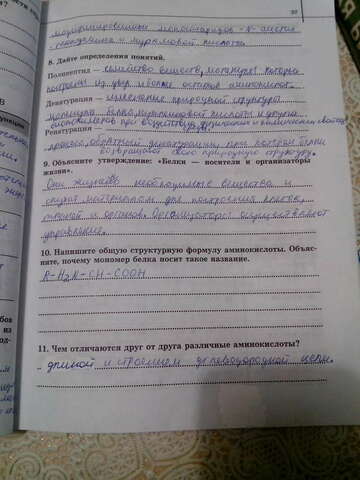 37
модифицированных моносахаридов - N-ацетил
-глюкозамина и мурамовой кислоты
8. Дайте определения понятий.
Полипептид — семейство веществ, молекулы которых
построены из двух и более остатков аминокислот.
Денатурация — изменение природной структуры
молекулы белка,
Ренатурация —
процесс, обратный денатурации, при котором белки
возвращают свою природную структуру.
9. Объясните утверждение: «Белки — носители и организаторы
жизни».
Они жизненно необходимые вещества и
служат материалом для построения клеток,
тканей и органов. Организаторы: осуществляют
управление.
10. Напишите общую структурную формулу аминокислоты. Объяс-
ните, почему мономер белка носит такое название.
R-H2N-CH-COOH
11. Чем отличаются друг от друга различные аминокислоты?
- длиной и строением углеводородной цепи.